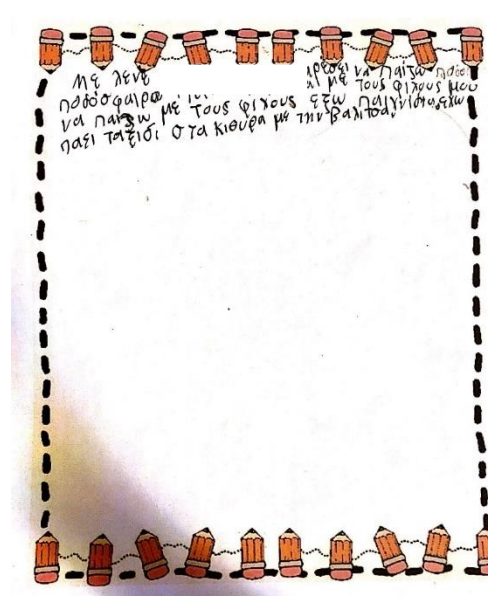 Με λενε ρεσει να παιζω ποδοσ
ποδοσφαιρο με τους φιλους μου
να παιζω με τους φιλους εξω παιχνιδια εχω
παει ταξιδι στα κιθυρα με την βαλιτσα